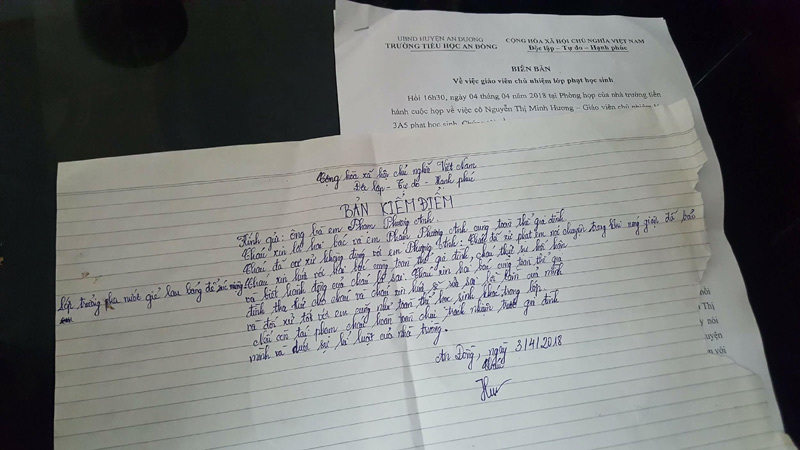 UBND HUYỆN AN DƯƠNG
TRƯỜNG TIỂU HỌC AN ĐỒNG
CỘNG HÒA XÃ HỘI CHỦ NGHĨA VIỆT NAM
Độc lập - Tự do - Hạnh phúc
BIÊN BẢN
Về việc giáo viên chủ nhiệm lớp phạt học sinh
Hồi 16h30, ngày 04 tháng 04 năm 2018 tại Phòng họp của nhà trường tiến
hành cuộc họp về việc cô Nguyễn Thị Minh Hương – Giáo viên chủ nhiệm
3A5 phạt học sinh.
Cộng hòa xã hội chủ nghĩa Việt Nam
Độc lập - Tự do - Hạnh phúc
BẢN KIỂM ĐIỂM
Kính gửi: ông bà em Phạm Phương Anh.
Cháu xin lỗi hai bác và em Phạm Phương Anh cùng toàn thể gia đình
Cháu đã cư xử không đúng với em Phương Anh. Cháu đã xử phạt em nói chuyện trong khi nóng giận đã bảo
lớp trưởng pha nước giẻ lau bảng để súc miệng. Cháu xin hứa với cùng toàn thể gia đình, cháu thật sự hối hận
và biết hành động của cháu là sai. Cháu xin hai bác cùng toàn thể gia
đình tha thứ cho cháu và cháu xin hứa sẽ sửa sai lỗi lầm của mình
và đối xử tốt với em cũng như toàn thể học sinh khác trong lớp.
Nếu còn tái phạm cháu hoàn toàn chịu trách nhiệm trước gia đình
mình và dưới sự kỉ luật của nhà trường.
An Đồng, ngày 3/4/2018
nói
Thị
y nói
uyện
m với